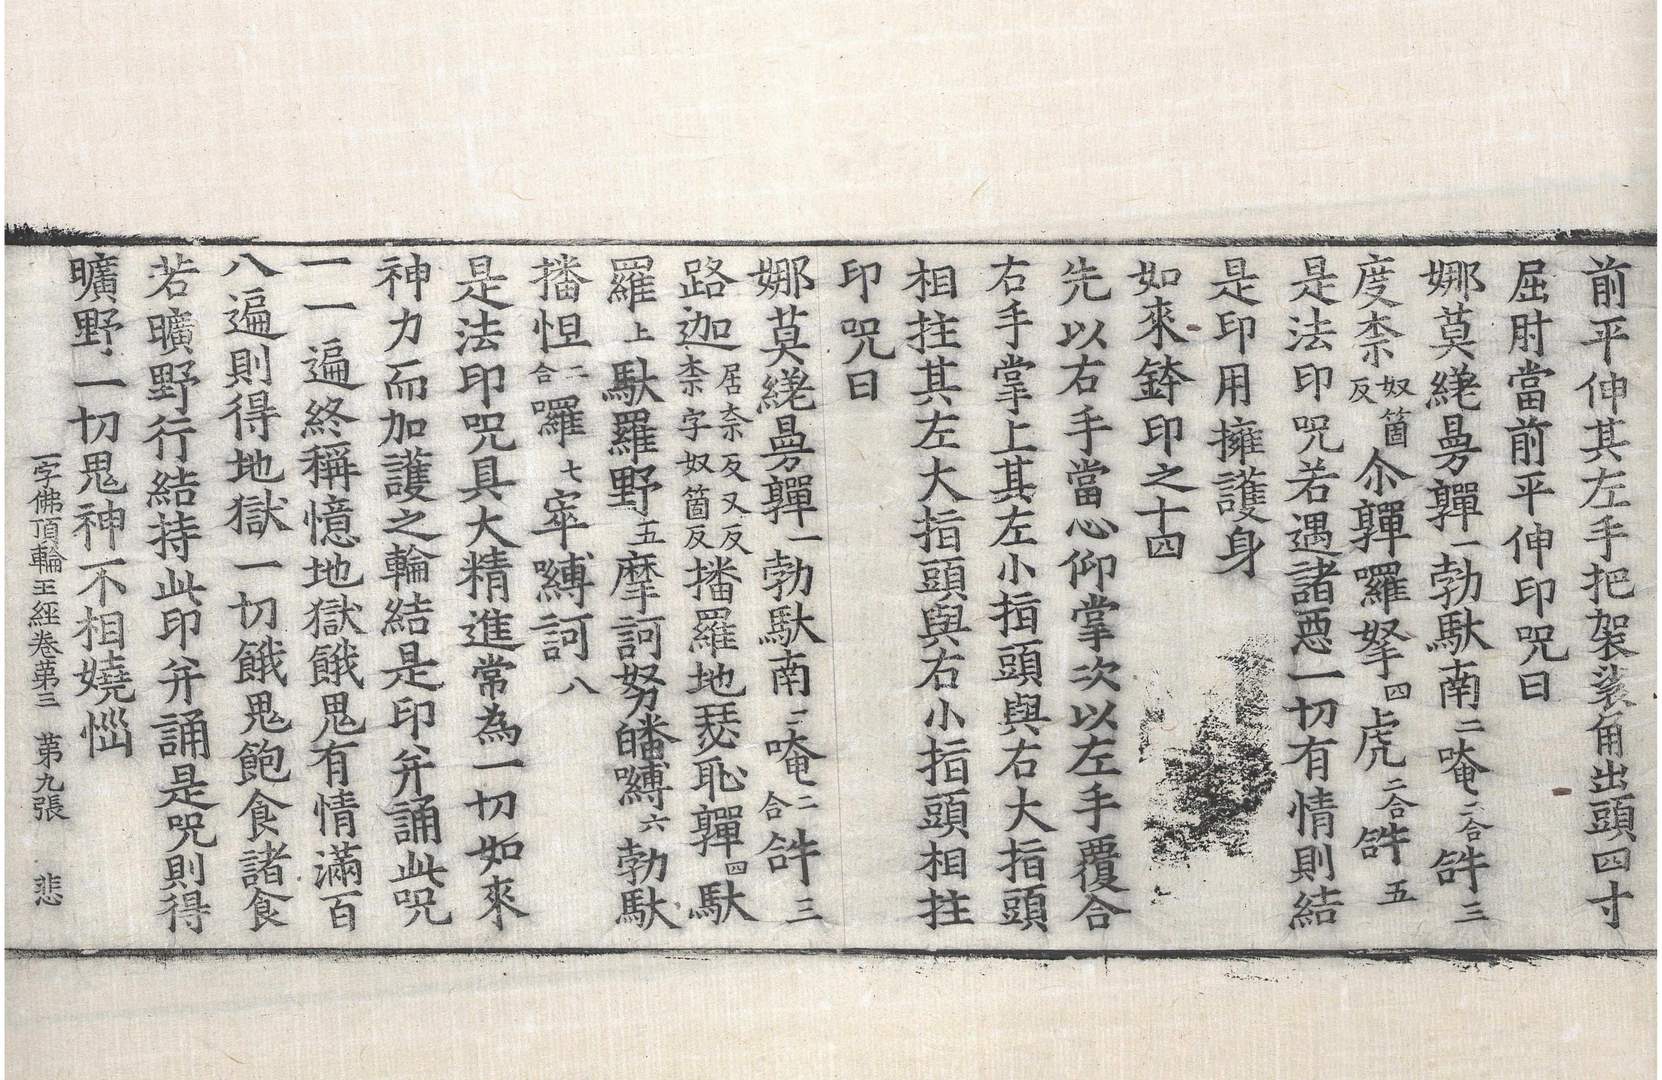 前平伸其左手把袈裟角出頭四寸
屈肘當前平伸印呪曰
娜莫繞曼馹一勃馱南二唵二合𤙖三
度柰奴箇反尒囉拏四虎二合𤙖五
是法印呪若遇諸惡一切有情則結
是印用擁護身
如來鉢印之十四
先以右手當心仰掌次以左手覆合
右手掌上其左小指頭與右大指頭
相拄其左大指頭與右小指頭相拄
印呪曰
娜莫曼一勃馱南二唵二合三
路迦居柰反又反柰字奴箇反播羅地瑟恥四馱
羅上馱羅野五摩訶努皤嚩六勃馱
播怛二合囉七宰嚩訶八
是法印呪具大精進常為一切如來
神力而加護之輪結是印并誦此呪
一一遍終稱憶地獄餓鬼有情滿百
八遍則得地獄一切餓鬼飽食諸食
若曠野行結持此印并誦是呪則得
曠野一切鬼神不相嬈惱
一字佛頂輪王經卷第三　第九張　悲